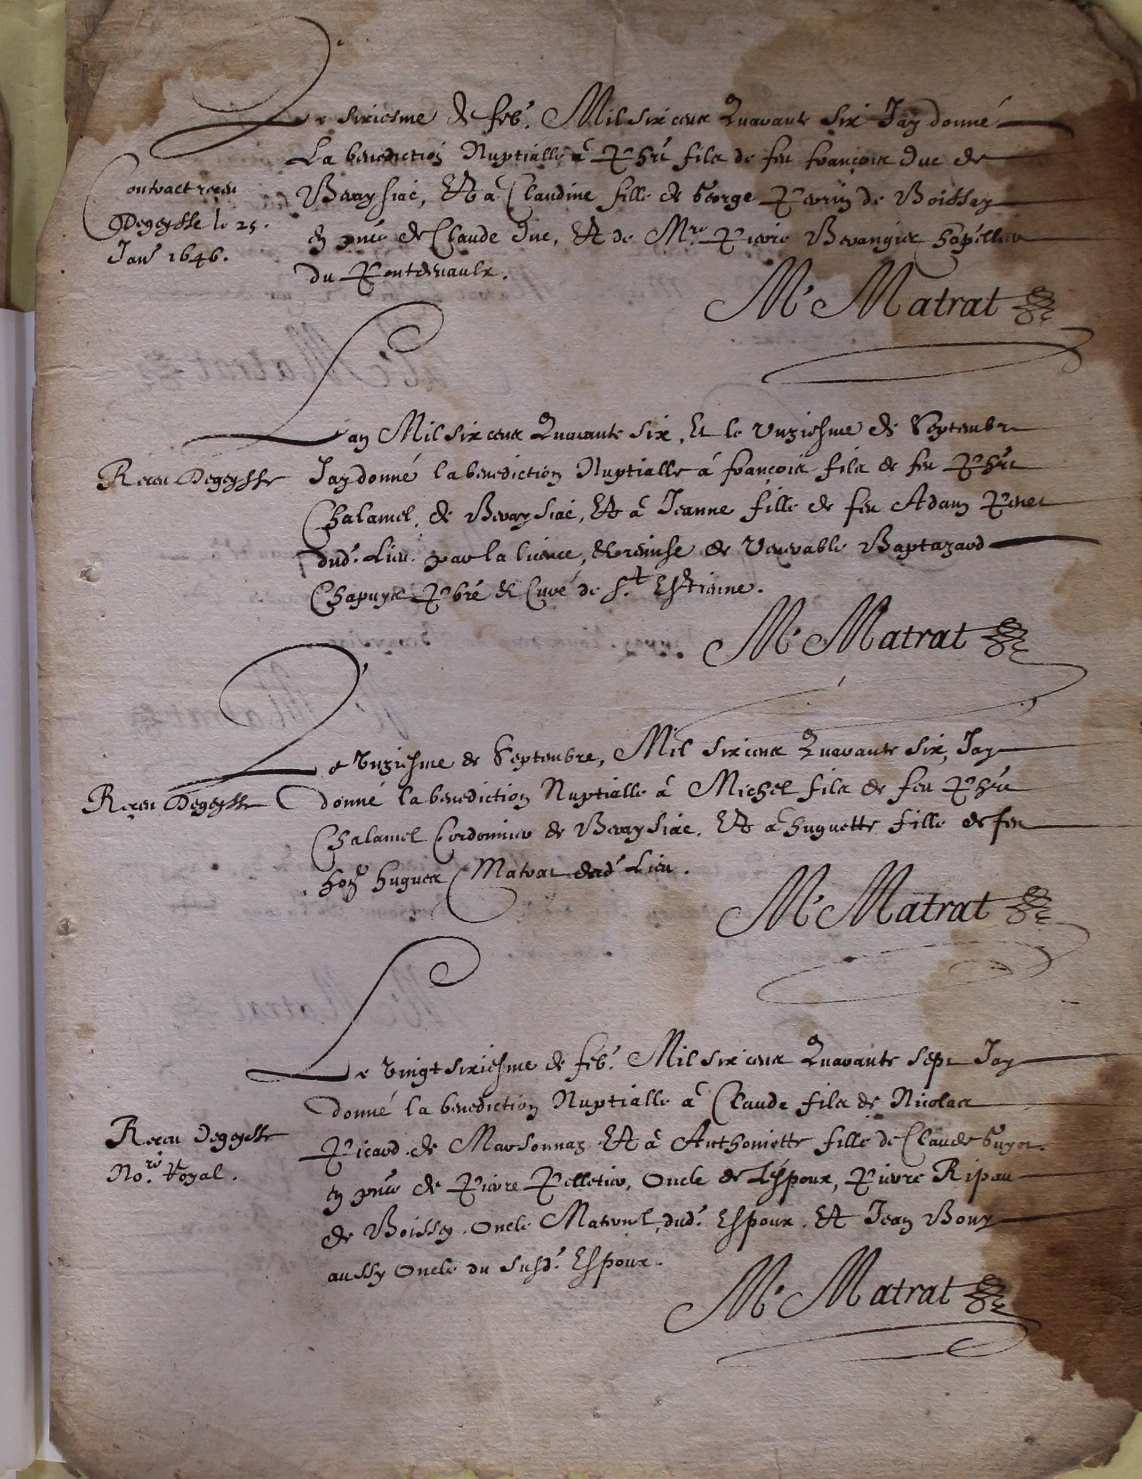 Le sixiesme de feb. Mil six cens Quarante six Jay donné
La benediction Nuptialle à Phẽ filz de feu françois Duc de
Contract receu
Beraysiac, Et à Claudine fille de George Perrin de Boissey
Degeysse le 25.
en pnce de Claude Duc, Et de Mre Pierre Berangier
Janr 1646.
du Pontdevaulx.
Mr Matrat
Lan Mil six cens Quarante six, Et le Unziesme de Septembre
Receu Degeysse
Jay donné la benediction Nuptialle à françois filz de feu Phẽ
Chalamel, de Beraysiac, Et à Jeanne fille de feu Adam
dud. Lieu. par la licence, et remise de Venerable Baptazard
Chapuys Pbre et Curé de St Estienne.
Mr Matrat
Le Unziesme de Septembre, Mil six cens Quarante six, Jay
Receu Degeysse
donné la benediction Nuptialle à Michel filz de feu Phẽ
Chalamel Cordonnier de Beraysiac, Et à huguette fille de feu
hon. hugues Matrat dud. Lieu.
Mr Matrat
Le Vingt sixiesme de feb. Mil six cens Quarante sept Jay
donné la benediction Nuptialle à Claude filz de Nicolas
Receu Degeysse
Picard de Marsonnaz Et à Anthoniette fille de Claude Guyot.
Nore Royal.
en pnce de Pierre Pelletier, Oncle de Lespoux, Pierre Ripau
de Boissey. Oncle Maternel dud. Espoux. Et Jean Bouy
aussy Oncle du susd. Espoux.
Mr Matrat